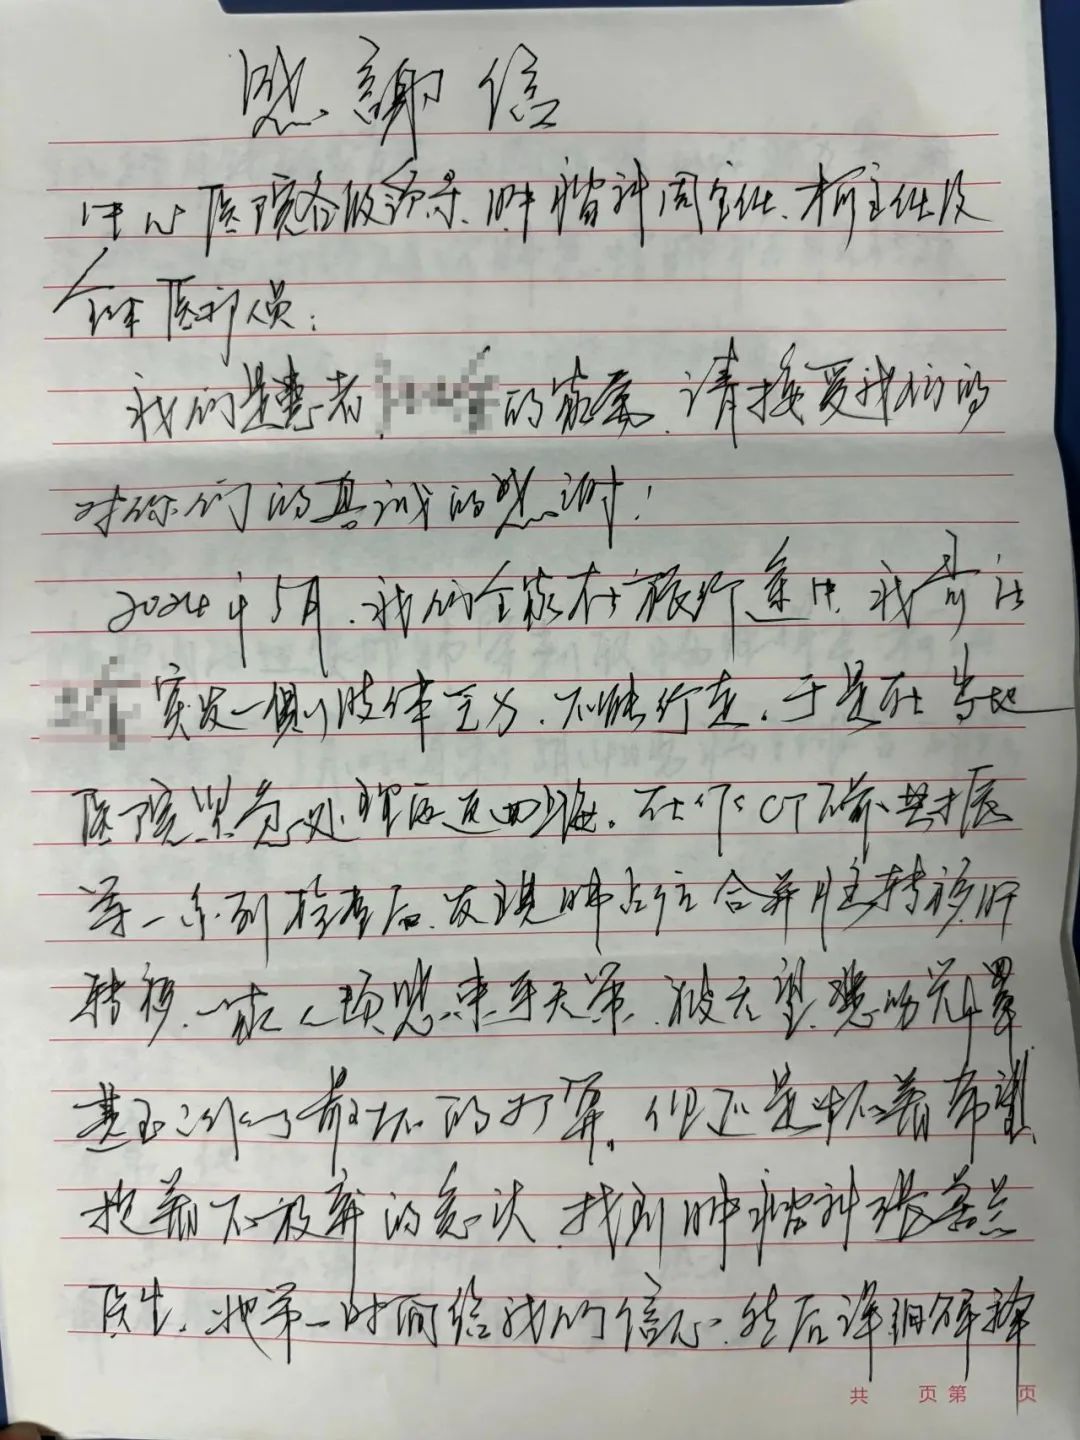 感謝信
中心医院各级领导、肿瘤科周主任、柯主任及
全体医护人员：
我们是患者 的家属，请接受我们的
对你们的真诚的感谢！
2024年5月，我们全家在旅行途中，我哥
突发一侧肢体乏力，不能行走，于是在当地
医院紧急处理后返回上海。在做CT、磁共振
等一系列检查后，发现肺占位合并脑转移、肝
转移，一家人顿感束手无策，被无望、悲伤笼罩
甚至做了最坏的打算。但还是怀着希望
抱着不放弃的念头，找到肿瘤科张
医生，她第一时间给我们信心，然后详细解释
共 页 第 页